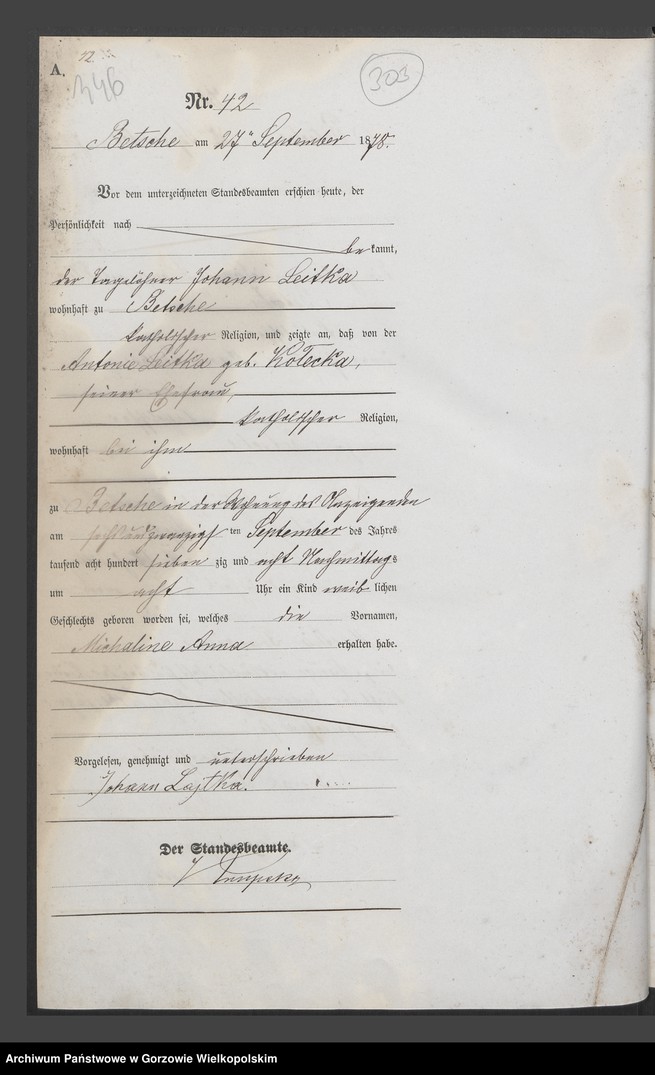 A.
346
303
Nr. 42
Betsche am 27n September 1878.
Vor dem unterzeichneten Standesbeamten erschien heute, der
Persönlichkeit nach
bekannt,
der Tagelöhner Johann Leitka
wohnhaft zu Betsche
katholischer Religion, und zeigte an, daß von der
Antonie Leitka geb. Kołecka,
seiner Ehefrau,
katholischer Religion,
wohnhaft bei ihm
zu Betsche in der Wohnung des Anzeigenden
am sechsundzwanzigsten September des Jahres
tausend acht hundert siebenzig und acht Nachmittags
um acht Uhr ein Kind weiblichen
Geschlechts geboren worden sei, welches die Vornamen,
Michaline Anna erhalten habe.
Vorgelesen, genehmigt und unterschrieben
Johann Lajtka.
Der Standesbeamte.
Archiwum Państwowe w Gorzowie Wielkopolskim